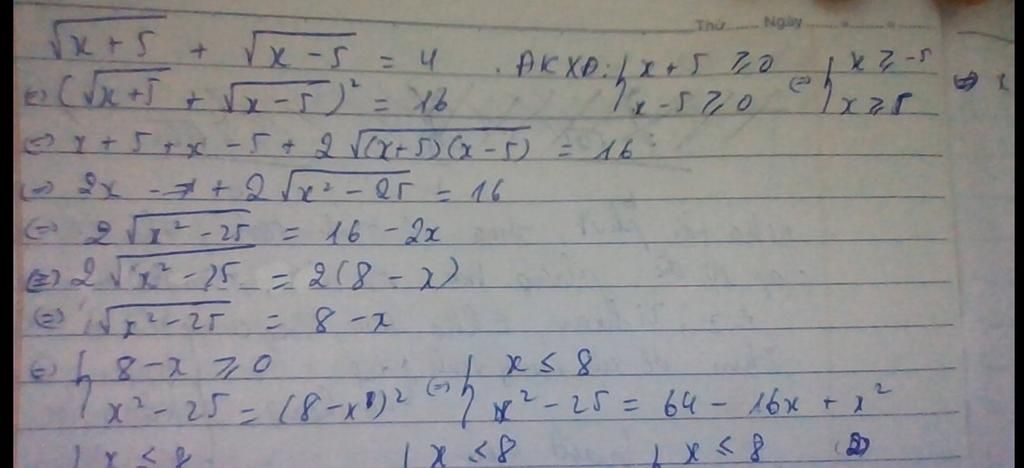 Thứ ........ Ngày ........
√(x+5) + √(x-5) = 4 . ĐKXĐ: { x+5 ≥ 0 ⇔ { x ≥ -5 ⇒ x
⇔ (√(x+5) + √(x-5))² = 16 { x-5 ≥ 0 { x ≥ 5
⇔ x+5+x-5+2√((x+5)(x-5)) = 16
⇔ 2x + 2√(x²-25) = 16
⇔ 2√(x²-25) = 16-2x
⇔ 2√(x²-25) = 2(8-x)
⇔ √(x²-25) = 8-x
⇔ { 8-x ≥ 0 ⇔ { x ≤ 8
{ x²-25 = (8-x)² { x²-25 = 64-16x+x²
{ x ≤ 8 { x ≤ 8 { x ≤ 8